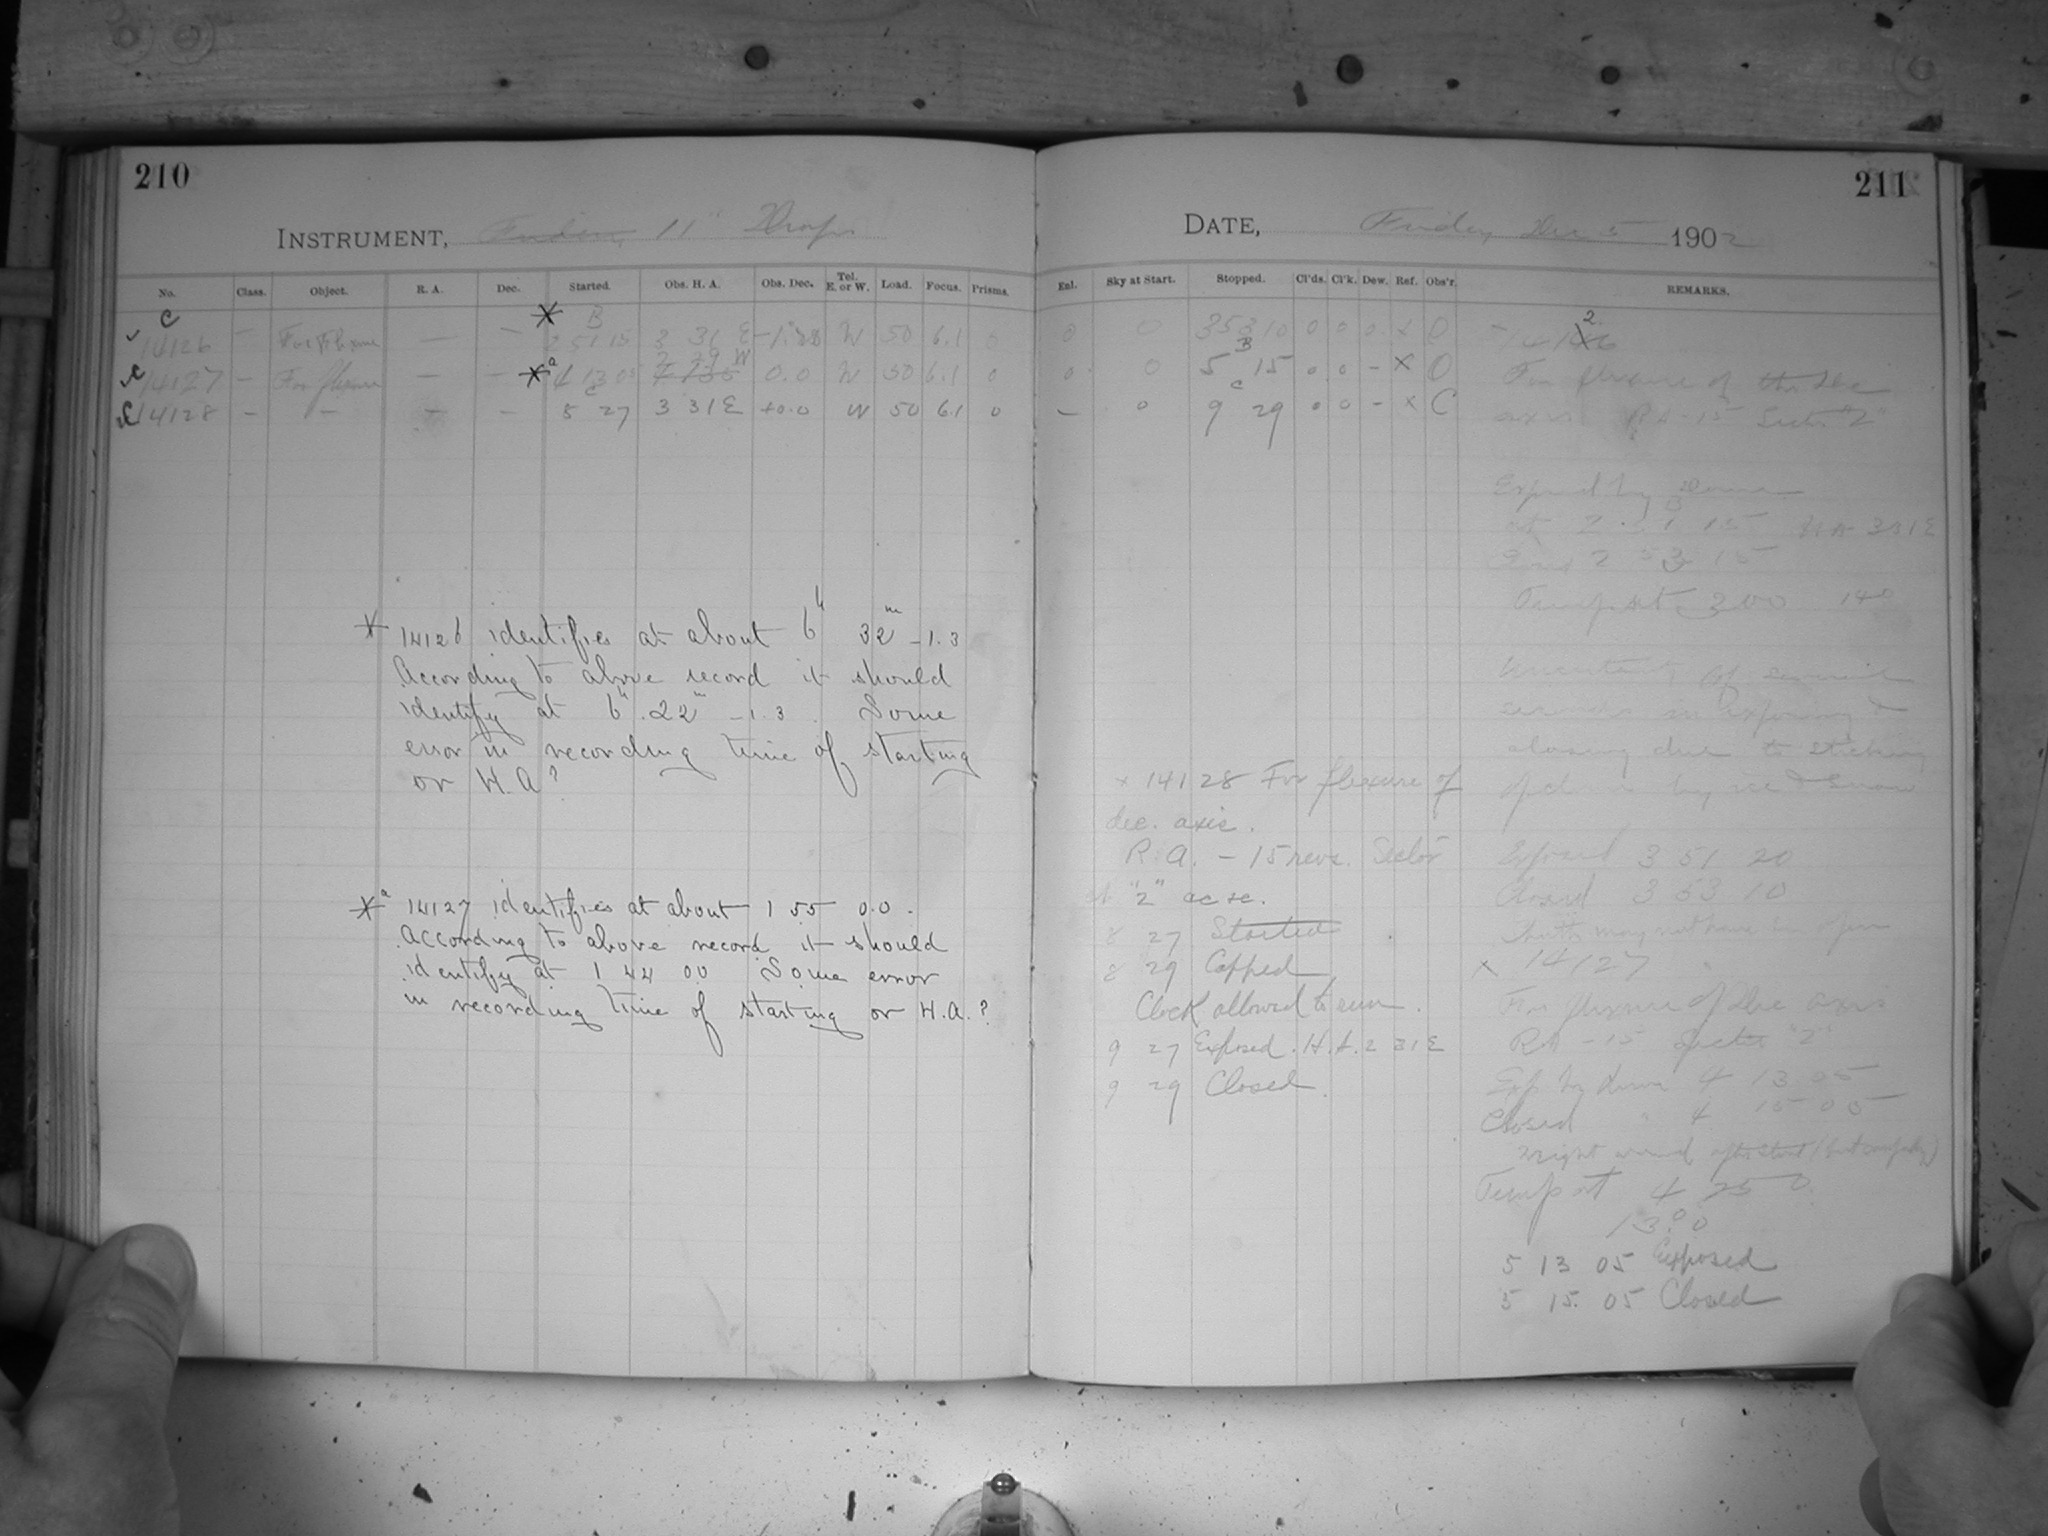 210
INSTRUMENT, 11" Draper
No. Class. Object. R. A. Dec. Started. Obs. H. A. Obs. Dec. Tel. E. or W. Load. Focus. Prisms.
C * B
14126 — For Flexure — — 2 51 15 3 31 E W 50 6.1 0
2 29 W
C 14127 — For flexure — — *a 4 13 05 0.0 W 50 6.1 0
C
C 14128 — — — — 5 27 3 31 E +0.0 W 50 6.1 0
* 14126 identifies at about 6h 32m -1.3
According to above record it should
identify at 6h. 22m -1.3. Some
error in recording time of starting
or H.A?
*a 14127 identifies at about 1 55 0.0.
According to above record it should
identify at 1 44 00 Some error
in recording time of starting or H.A.?
211
DATE, Friday Dec 5 1902
Enl. Sky at Start. Stopped. Cl'ds. Cl'k. Dew. Ref. Obs'r. REMARKS.
0 0 3 53 10 0 0 0 x O
B
0 0 5 15 0 0 - x O
C
— 0 9 29 0 0 - x C
x 14128 For flexure of
dec. axis.
R.A. - 15 revs. Sector
at "2" etc.
8 27 Started
8 29 Capped
Clock allowed to run.
9 27 Exposed. H.A. 2 31 E
9 29 Closed.
2
For flexure of the Dec
axis RA -15 Sector "2"
Exposed by Dome
at H A 3 31 E
Temp at 3 00 14°
Uncertainty of several
seconds in exposing &
closing due to sticking
of dome by ice & snow
Exposed 3 51 20
Closed 3 53 10
Shutter may not have been open
x 14127
For flexure of Dec axis
RA -15 Sector "2"
Exp. by dome 4 13 05
Closed " 4 15 05
Temp at 4 25 0
13.°0
5 13 05 Exposed
5 15. 05 Closed